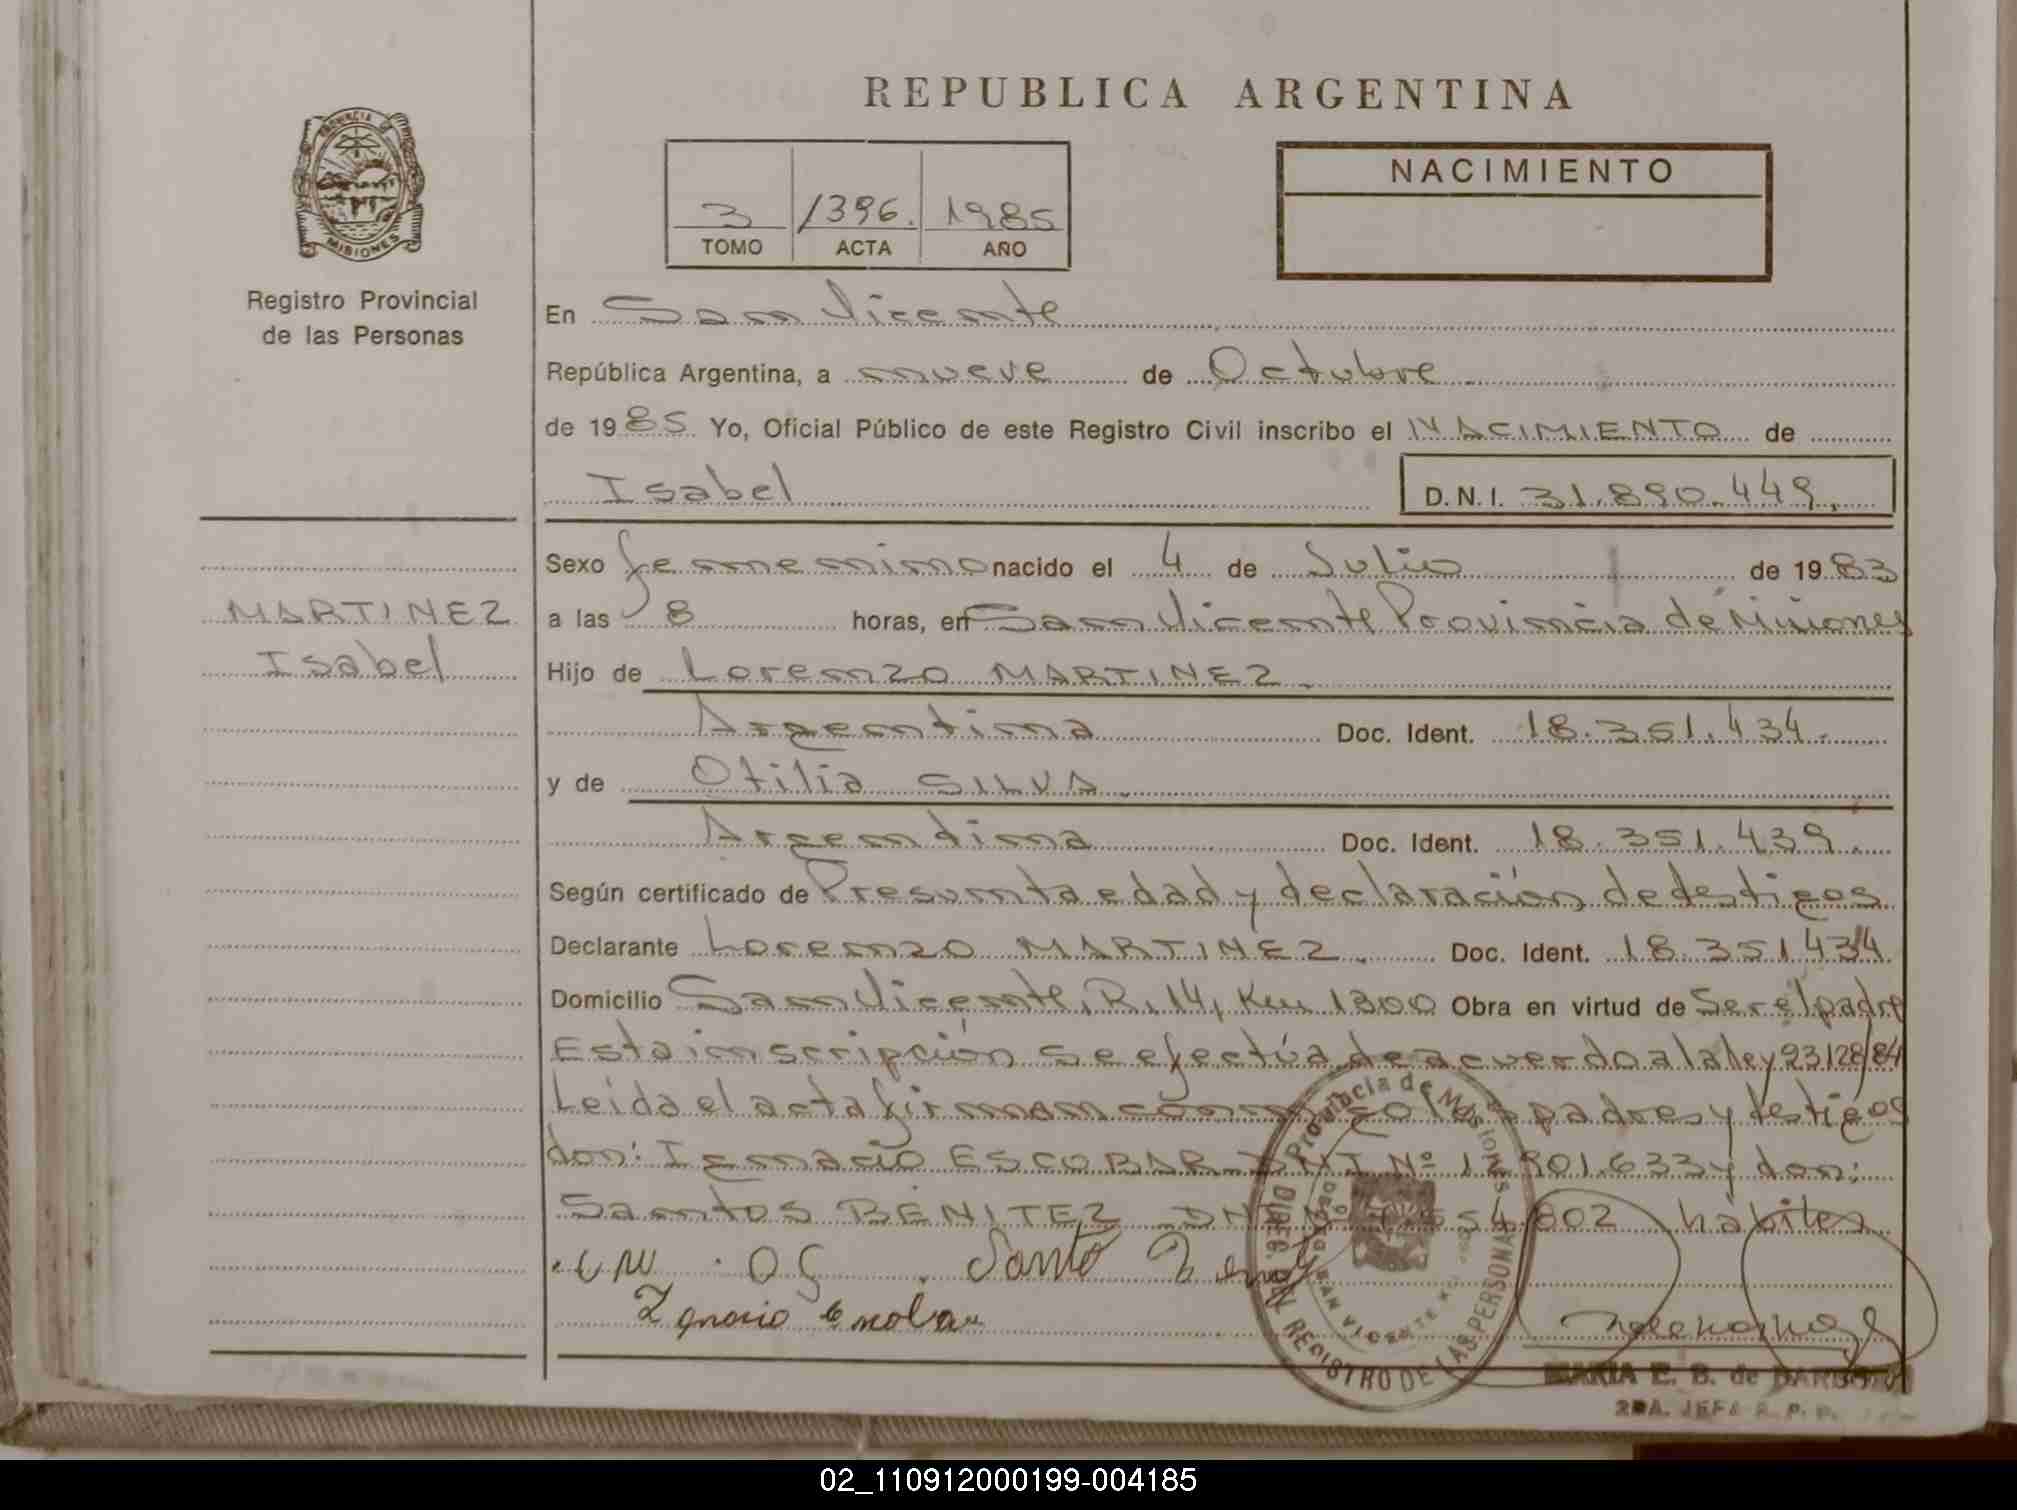 REPUBLICA ARGENTINA
PROVINCIA DE
MISIONES
Registro Provincial
de las Personas
3 1396. 1985
TOMO ACTA AÑO
NACIMIENTO
En San Vicente
República Argentina, a nueve de Octubre
de 1985 Yo, Oficial Público de este Registro Civil inscribo el NACIMIENTO de
Isabel D.N.I. 31.890.449.
Sexo femenino nacido el 4 de Julio de 1983
MARTINEZ
Isabel
a las 8 horas, en San Vicente Provincia de Misiones
Hijo de Lorenzo MARTINEZ.
Argentina Doc. Ident. 18.351.434.
y de Otilia SILVA.
Argentina Doc. Ident. 18.351.439.
Según certificado de Presunta edad y declaración de testigos
Declarante Lorenzo MARTINEZ. Doc. Ident. 18.351434
Domicilio San Vicente, R. 14, Km 1300 Obra en virtud de Ser el padre
Esta inscripción se efectúa de acuerdo a la ley 23128/84
Leida el acta firman conmigo los padres y testigos
don: Ignacio ESCOBAR DNI Nº 901.633 y don:
Santos BENITEZ 802 hábiles
Santo
Ignacio
Provincia de Misiones
REGISTRO DE LAS PERSONAS
MARIA E. B. de
2DA. JEFA R. P. P.
02_110912000199-004185